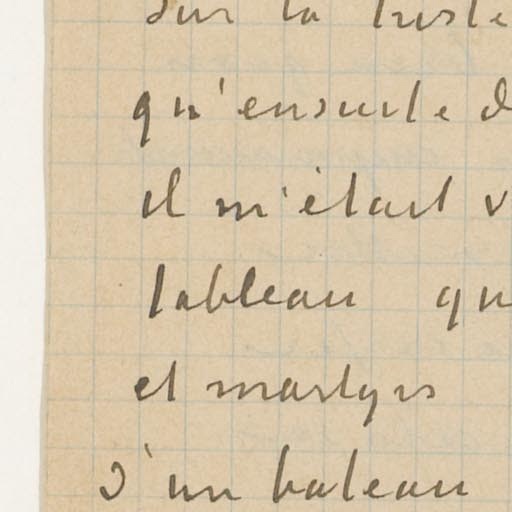 sur la triste
qu'ensuite d
il m'était v
tableau qu
et martyrs
d'un bateau